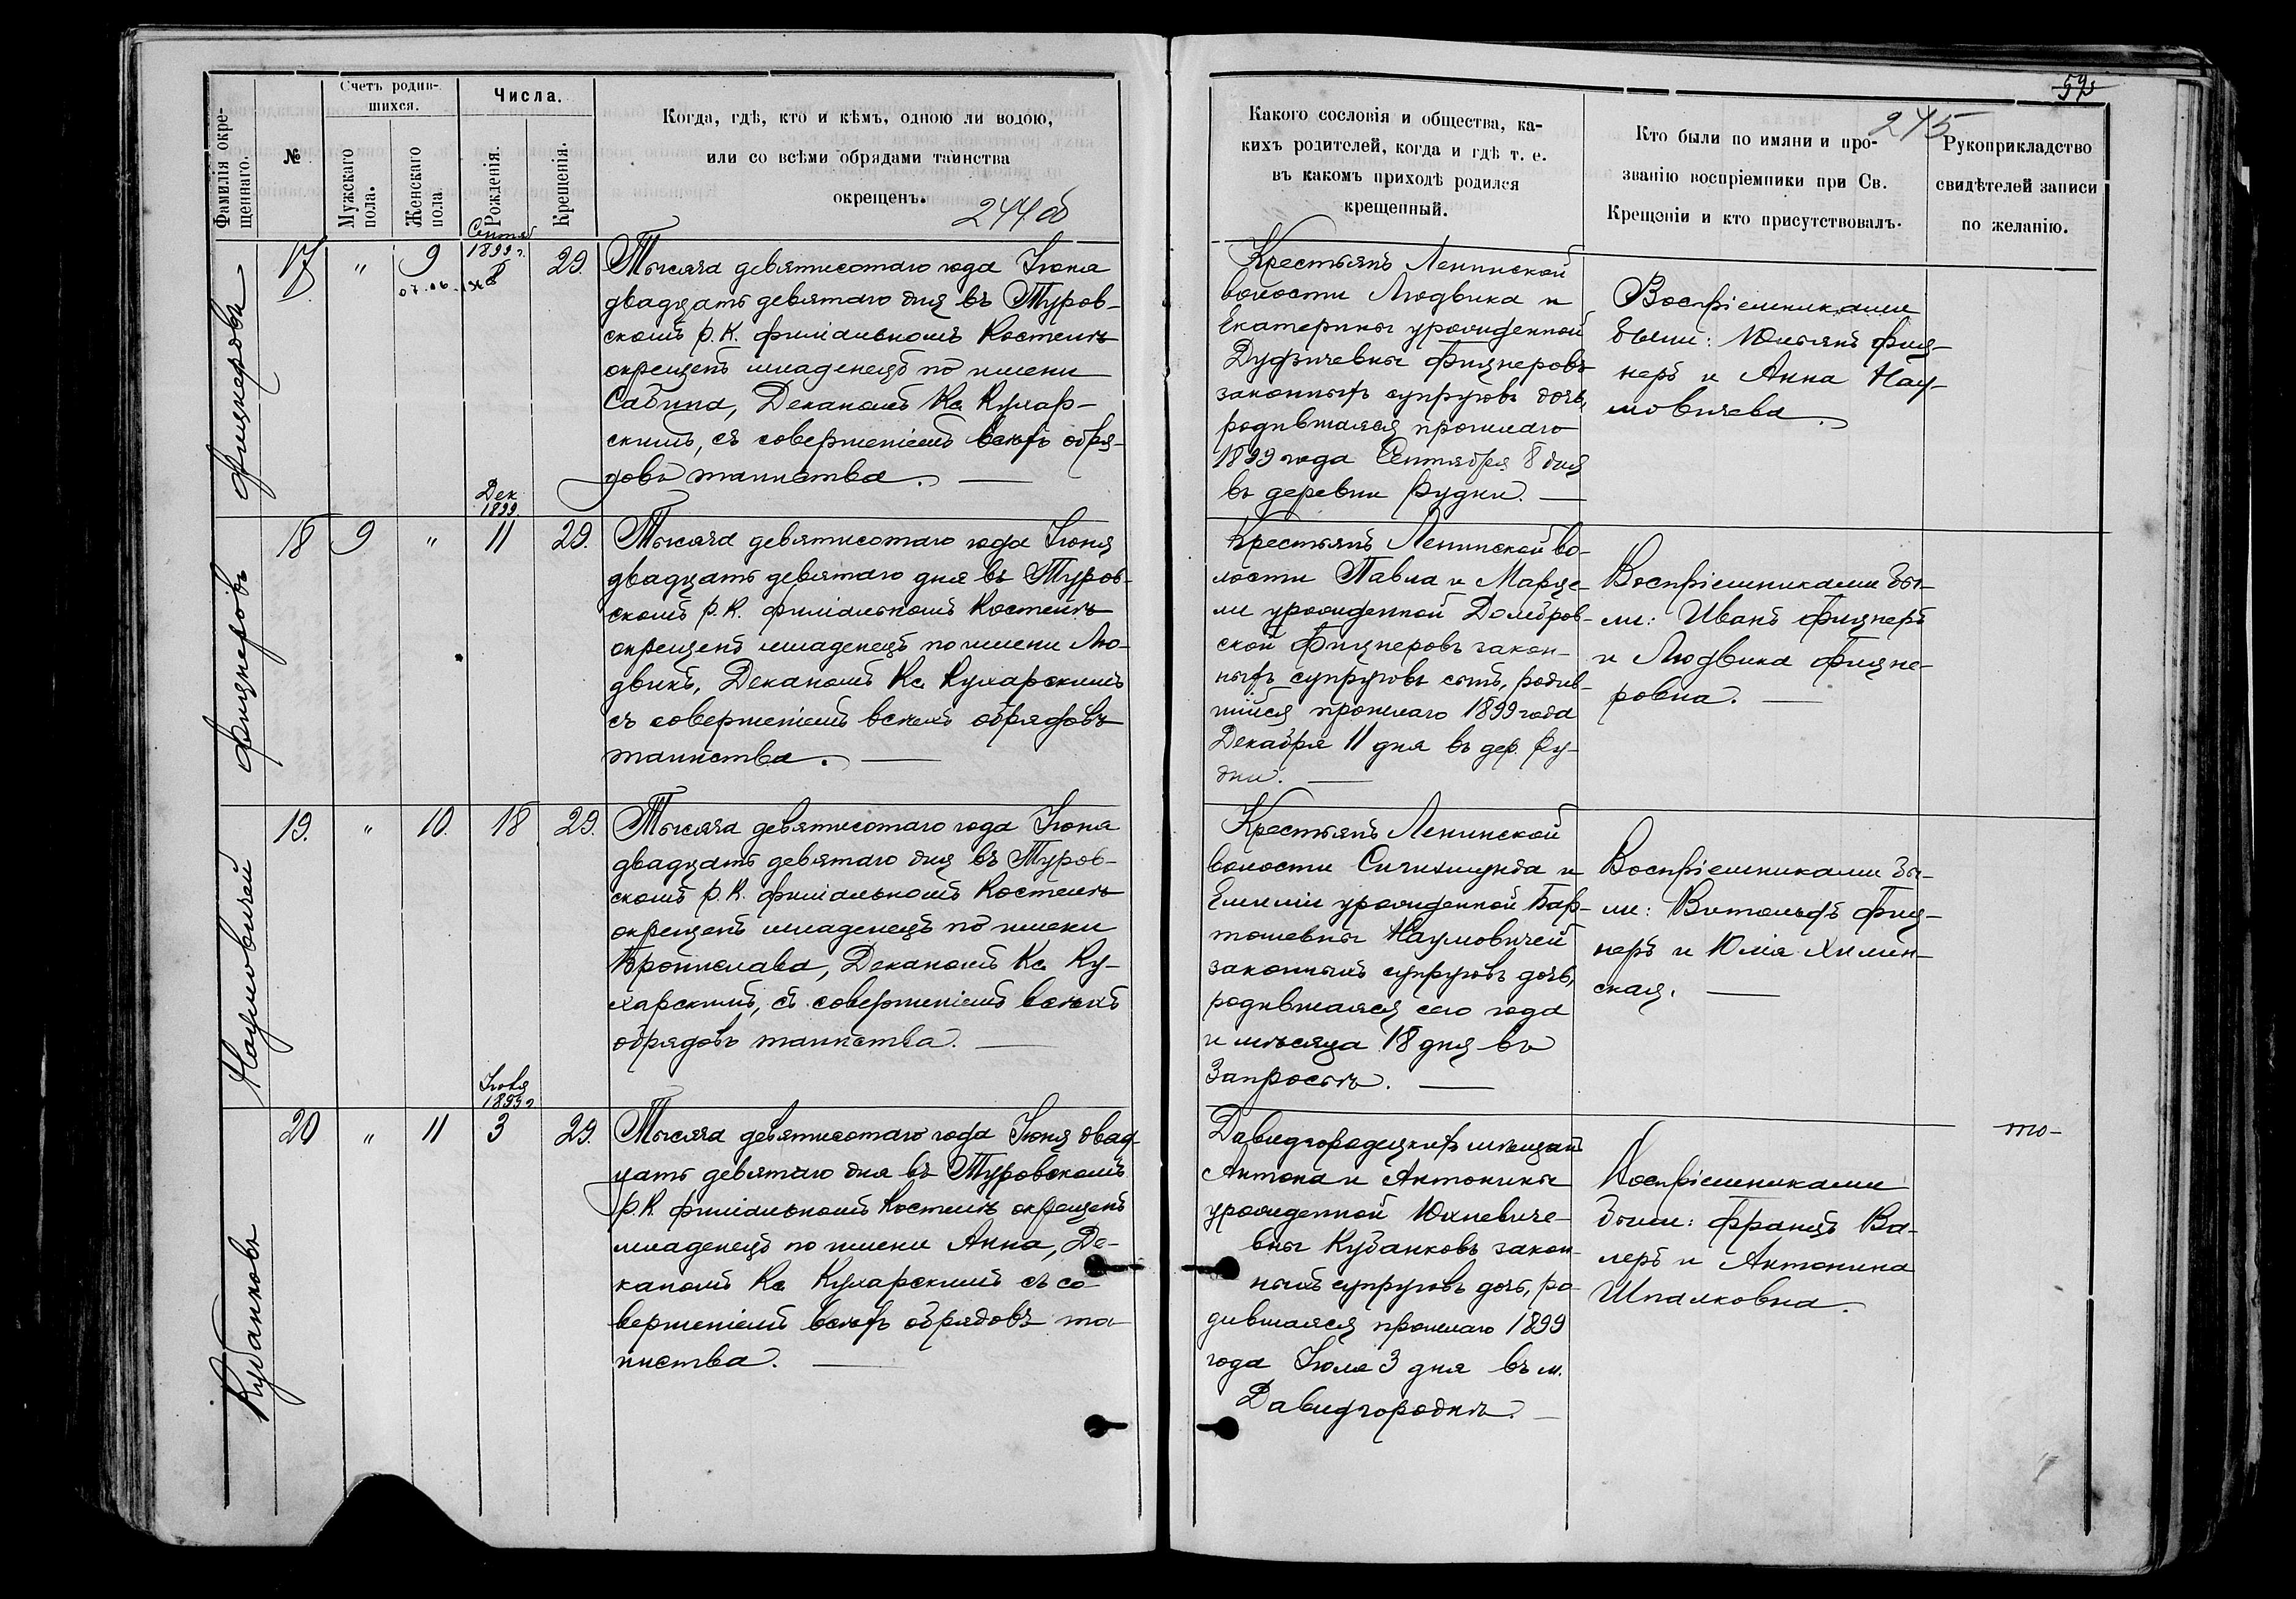 Фамилія окре-
щеннаго.
№
Счетъ родив-
шихся.
Мужскаго
пола.
Женскаго
пола
Числа.
Рожденія.
Крещенія.
Когда, гдѣ, кто и кѣмъ, одною ли водою,
или со всѣми обрядами таинства
окрещенъ.
244 об
Фицнеровъ
17
"
9
Сентяб
1899 г.
8
29.
Тысяча девятисотаго года Іюня
двадцать девятаго дня въ Туров-
скомъ Р. К. филіальномъ Костелѣ
окрещенъ младенецъ по имени
Сабина, Деканомъ Кс. Кухар-
скимъ, съ совершеніемъ всѣхъ обря-
довъ таинства. —
Фицнеровъ
18
9
"
Дек
1899.
11
29.
Тысяча девятисотаго года Іюня
двадцать девятаго дня въ Туров-
скомъ Р. К. филіальномъ Костелѣ
окрещенъ младенецъ по имени Лю-
двикъ, Деканомъ Кс. Кухарскимъ
съ совершеніемъ всѣхъ обрядовъ
таинства. —
Наумовичей
19.
"
10.
18
29.
Тысяча девятисотаго года Іюня
двадцать девятаго дня въ Туров-
скомъ Р. К. филіальномъ Костелѣ
окрещенъ младенецъ по имени
Бронислава, Деканомъ Кс. Ку-
харскимъ, съ совершеніемъ всѣхъ
обрядовъ таинства. —
Кубанковъ
20
"
11
1899 г
3
29.
Тысяча девятисотаго года Іюня двад-
цать девятаго дня въ Туровскомъ
Р. К. филіальномъ Костелѣ окрещенъ
младенецъ по имени Анна, Де-
каномъ Кс. Кухарскимъ съ со-
вершеніемъ всѣхъ обрядовъ та-
инства. —
59
245
Какого сословія и общества, ка-
кихъ родителей, когда и гдѣ т. е.
въ какомъ приходѣ родился
крещенный.
Кто были по имяни и про-
званію воспріемники при Св.
Крещеніи и кто присутствовалъ.
Рукоприкладство
свидѣтелей записи
по желанію.
Крестьянъ Ленинской
волости Людвика и
Екатерины урожденной
Дуфиничевны Фицнеровъ
законныхъ супруговъ дочь,
родившаяся прошлаго
1899 года Сентября 8 дня
въ деревни Рудни. —
Воспріемниками
были: Юльянъ Фиц-
неръ и Анна Нау-
мовичева.
Крестьянъ Ленинской во-
лости Павла и Марце-
ли урожденной Домбров-
ской Фицнеровъ закон-
ныхъ супруговъ сынъ, родив-
шійся прошлаго 1899 года
Декабря 11 дня въ дер. Ру-
дни. —
Воспріемниками бы-
ли: Иванъ Фицнеръ
и Людвика Фицне-
ровна. —
Крестьянъ Ленинской
волости Сигизмунда и
Емиліи урожденной Бар-
тошевны Наумовичей
законныхъ супруговъ дочь,
родившаяся сего года
и мѣсяца 18 дня въ
Запросьѣ. —
Воспріемниками бы-
ли: Витольдъ Фиц-
неръ и Юлія Хилин-
ская. —
Давидгородецкихъ мѣщанъ
Антона и Антонины
урожденной Юхневиче-
вны Кубанковъ закон-
ныхъ супруговъ дочь, ро-
дившаяся прошлаго 1899
года Іюля 3 дня въ м.
Давидгородкѣ. —
Воспріемниками
были: Францъ Ва-
леръ и Антонина
Шпаковна.
то-